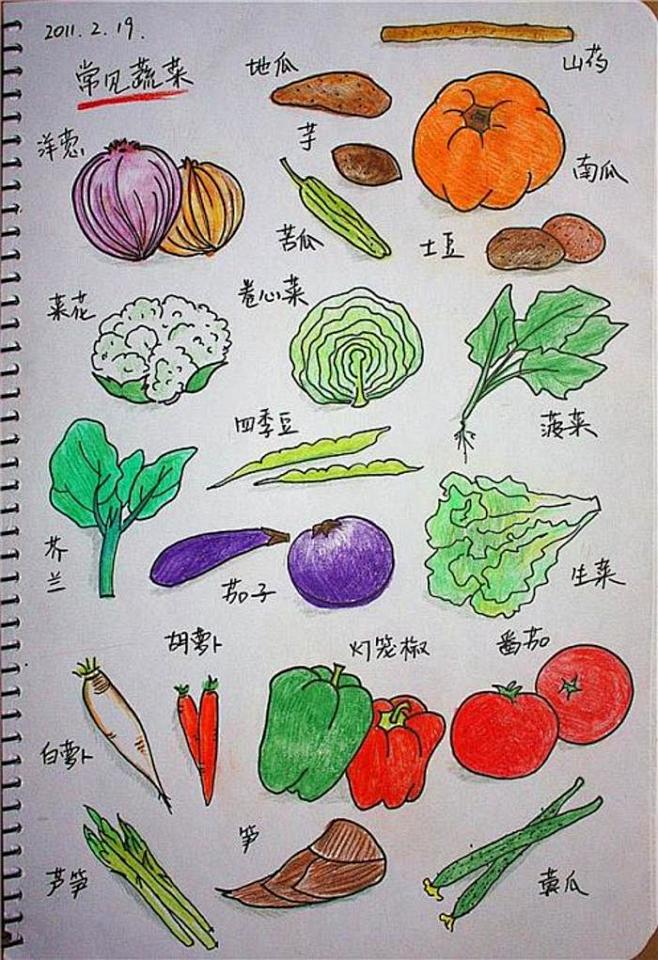 2011.2.19.
常见蔬菜
地瓜
山药
洋葱
芋
南瓜
苦瓜
土豆
菜花
卷心菜
菠菜
四季豆
芥兰
茄子
生菜
胡萝卜
灯笼椒
番茄
白萝卜
笋
芦笋
黄瓜